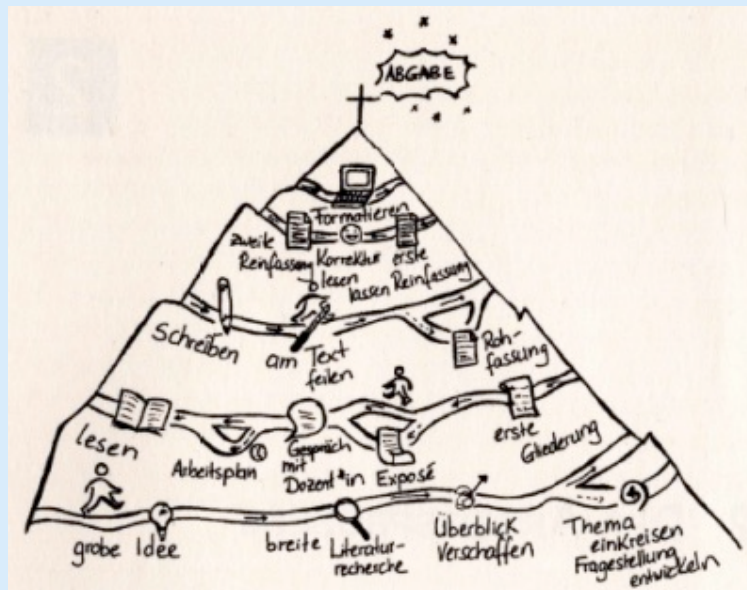 ABGABE
Formatieren
zweite Reinfassung
Korrektur lesen lassen
erste Reinfassung
Schreiben
am Text feilen
Rohfassung
lesen
Arbeitsplan
Gespräch mit Dozent*in
Exposé
erste Gliederung
grobe Idee
breite Literaturrecherche
Überblick verschaffen
Thema einkreisen
Fragestellung entwickeln